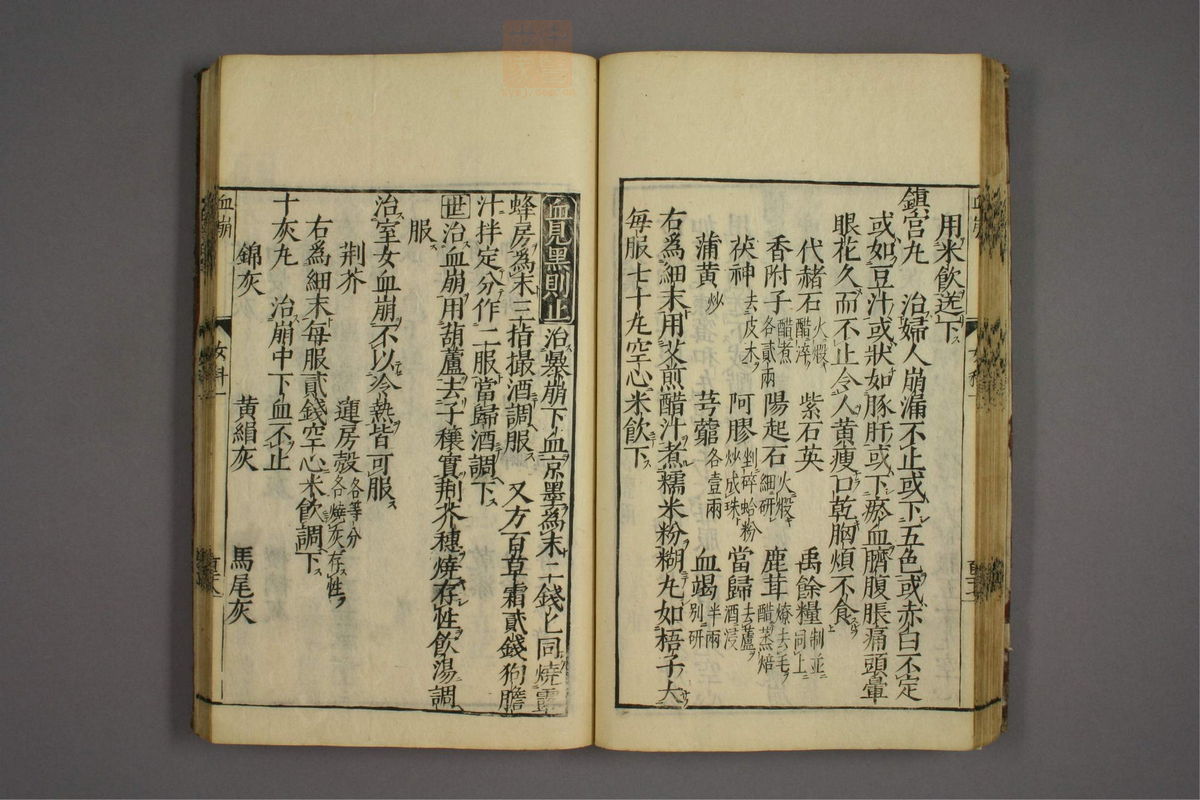 用米飲送下
鎮宮丸 治婦人崩漏不止或下五色或赤白不定
或如豆汁或狀如豚肝或下瘀血臍腹脹痛頭暈
眼花久而不止令人黄瘦口乾胸煩不食
代赭石火煅醋淬 紫石英 禹餘糧制並同上
香附子醋煮各貳兩 陽起石火煅細研 鹿茸燎去毛醋蒸焙
茯神去皮木 阿膠剉碎蛤粉炒成珠 當歸去蘆酒浸
蒲黄炒 芎藭各壹兩 血竭別研半兩
右爲細末用艾煎醋汁煮糯米粉糊丸如梧子大
每服七十丸空心米飲下
血崩
女科一
血見黑則止 治暴崩下血京墨爲末二錢匕同燒露
蜂房爲末三指撮酒調服 又方百草霜貳錢狗膽
汁拌定分作二服當歸酒調下
世治血崩用葫蘆去子穰實荆芥穗燒存性飲湯調
服
治室女血崩不以冷熱皆可服
荆芥 蓮房殻各燒灰存性各等分
右爲細末每服貳錢空心米飲調下
十灰丸 治崩中下血不止
錦灰 黄絹灰 馬尾灰
血崩
女科一